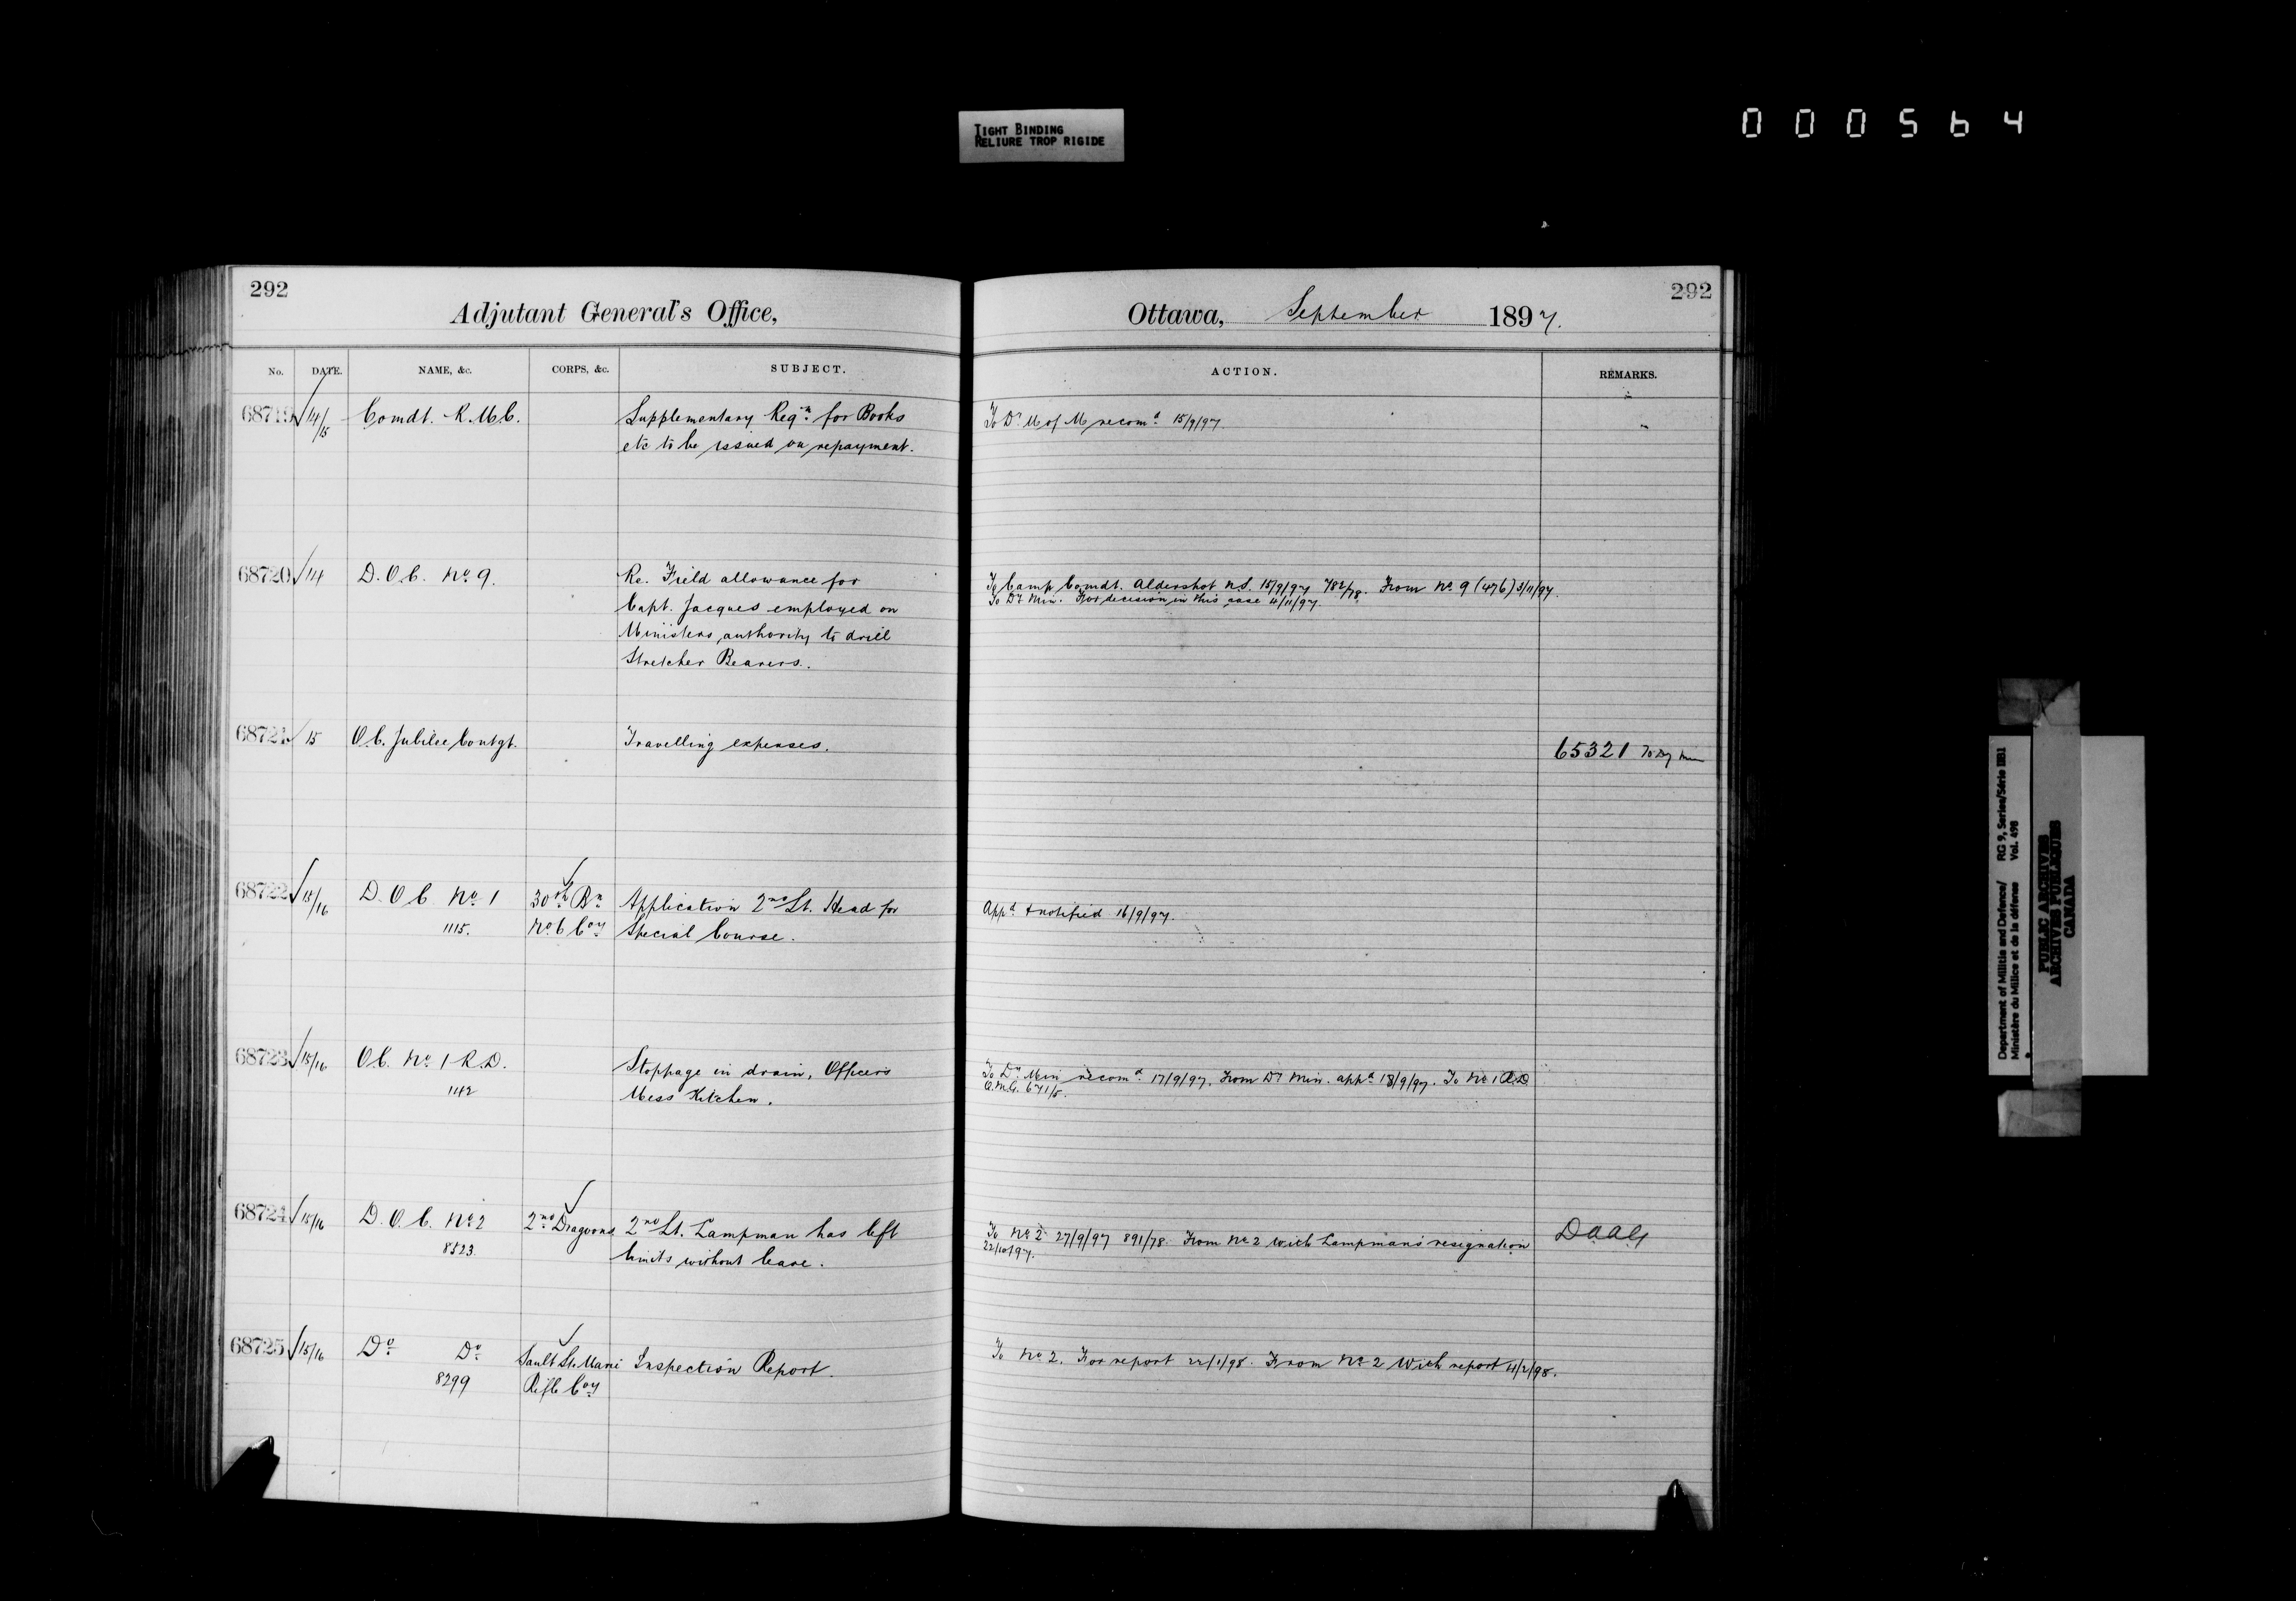 TIGHT BINDING
RELIURE TROP RIGIDE
000564
292
Adjutant General's Office,
No. DATE. NAME, &c. CORPS, &c. SUBJECT.
68719 14/15 Comdt. R.M.C. Supplementary Reqn for Books
etc to be issued on repayment.
68720 14 D.O.C. No 9. Re. Field allowance for
Capt. Jacques employed on
Ministers authority to drill
Stretcher Bearers.
68721 15 O.C. Jubilee Contgt. Travelling expenses.
68722 15/16 D.O.C. No 1 30th Bn Application 2nd Lt. Head for
1115. No 6 Coy Special Course.
68723 15/16 O.C. No 1 R.D. Stoppage in drain, Officers
1142 Mess Kitchen.
68724 15/16 D.O.C. No 2 2nd Dragoons 2nd Lt. Lampman has left
8523 limits without leave.
68725 15/16 Do Do Sault Ste Marie Inspection Report.
8299 Rifle Coy
292
Ottawa, September 1897.
ACTION. REMARKS.
To Dr M of M recomd 15/9/97.
To Camp Comdt. Aldershot N.S. 15/9/97 782/78. From No 9 (476) 3/11/97.
To Dy Min. For decision in this case 4/11/97.
65321 To Dy Min
Appd & notified 16/9/97.
To Dy Min recomd 17/9/97. From Dy Min. appd 18/9/97. To No 1 R.D.
Q.M.G. 671/5.
To No 2 27/9/97 891/78. From No 2 with Lampman's resignation DAAG
22/10/97.
To No 2. For report 22/1/98. From No 2 with report 4/2/98.
Department of Militia and Defence/ RG 9, Series/Série IIB1
Ministère du Milice et de la défense Vol. 498
PUBLIC ARCHIVES
ARCHIVES PUBLIQUES
CANADA